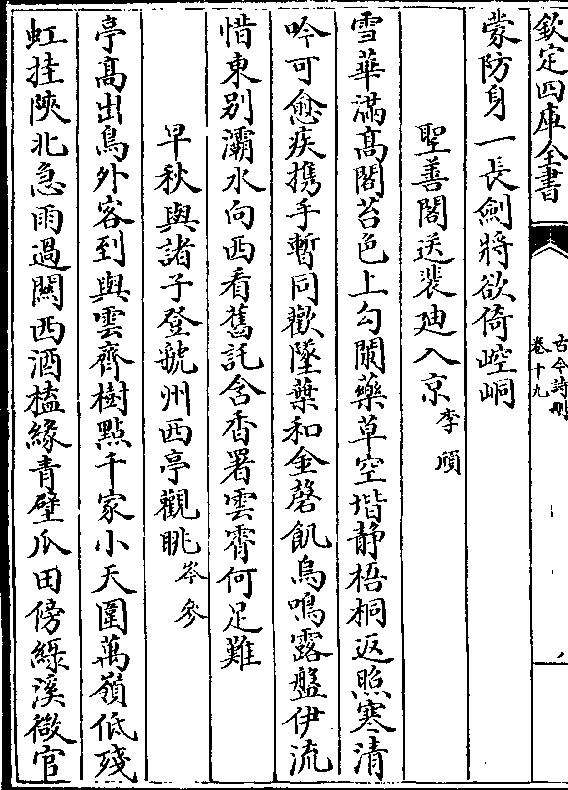 欽定四庫全書
古今詩刪
卷十九
蒙防身一長劍將欲倚崆峒
聖善閣送裴廸入京李頎
雪華滿髙閣苔色上勾闌藥草空堦静梧桐返照寒清
吟可愈疾携手暫同歡墜葉和金磬飢烏鳴露盤伊流
惜東别灞水向西看舊託含香署雲霄何足難
早秋與諸子登虢州西亭觀眺岑參
亭髙出鳥外客到與雲齊樹點千家小天圍萬嶺低殘
虹挂陜北急雨過關西酒榼緣青壁瓜田傍綠溪微官